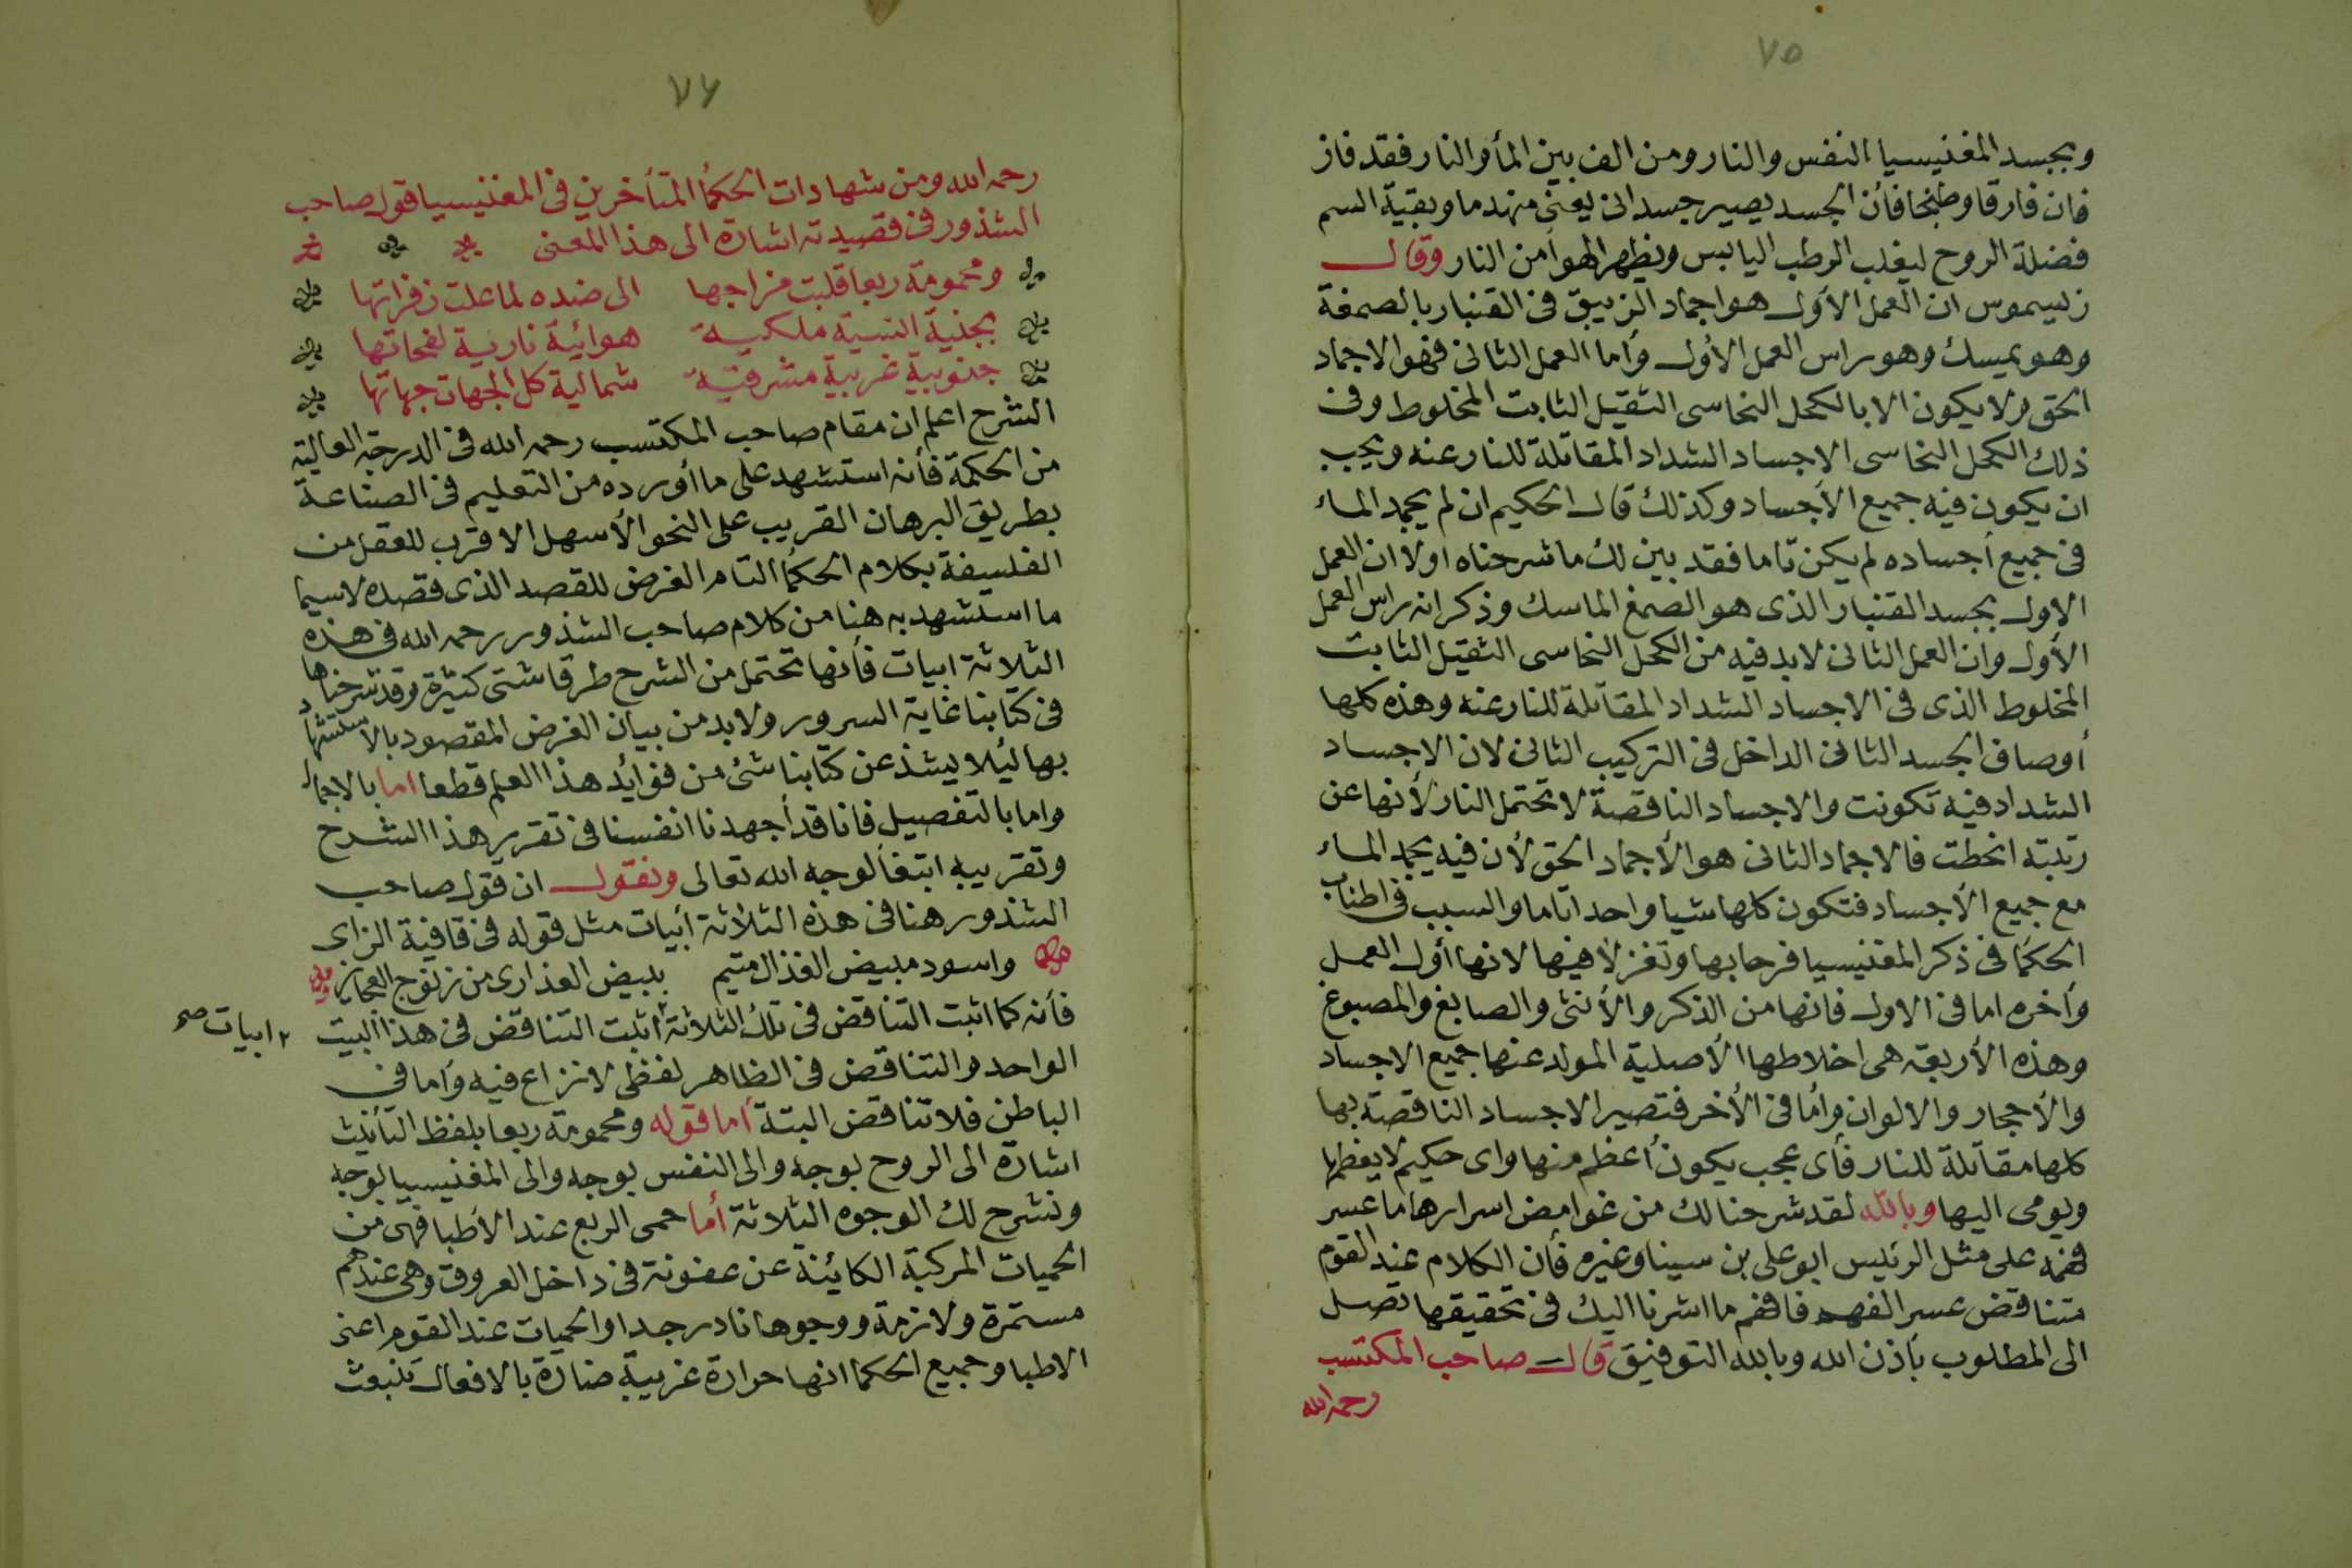 ٧٥
وبجسد المغنيسيا النفس والنار ومن الف بين المأ والنار فقد فاز
فان فارقا وطبخا فأن الجسد يصير جسدانى يعنى منهدما وبقية السم
فضلة الروح ليغلب الرطب اليابس ويظهر الهوأ من النار وقال
زسيموس ان العمل الأول هو اجماد الزيبق فى القنبار بالصمغة
وهو يمسك وهو راس العمل الأول وأما العمل الثانى فهو الاجماد
الحق ولا يكون الا بالكحل النحاسى الثقيل الثابت المخلوط وفى
ذلك الكحل النحاسى الاجساد الشداد المقاتلة للنار عنه ويجب
ان يكون فيه جميع الأجساد وكذلك قال الحكيم ان لم يجمد الماء
فى جميع أجساده لم يكن تاما فقد بين لك ما شرحناه اولا ان العمل
الاول بجسد القنبار الذى هو الصمغ الماسك وذكر انه راس العمل
الأول وان العمل الثانى لابد فيه من الكحل النحاسى الثقيل الثابت
المخلوط الذى فى الاجساد الشداد المقاتلة للنار عنه وهذه كلها
أوصاف الجسد الثانى الداخل فى التركيب الثانى لان الاجساد
الشداد فيه تكونت والاجساد الناقصة لا تحتمل النار لأنها عن
رتبته انحطت فالاجماد الثانى هو الأجماد الحق لأن فيه يجمد الماء
مع جميع الأجساد فتكون كلها شيا واحدا تاما والسبب فى اطناب
الحكمأ فى ذكر المغنيسيا فرحا بها وتغزلا فيها لانها أول العمل
وأخره اما فى الاول فانها من الذكر والأنثى والصابغ والمصبوغ
وهذه الأربعة هى اخلاطها الأصلية المولد عنها جميع الاجساد
والأحجار والالوان وأما فى الأخر فتصير الاجساد الناقصة بها
كلها مقاتلة للنار فأى عجب يكون أعظم منها واى حكيم لا يعظمها
ويومى اليها وبالله لقد شرحنا لك من غوامض اسرارها ما عسر
فهمه على مثل الرئيس ابو على بن سينا وغيره فأن الكلام عند القوم
متناقض عسر الفهم فافهم ما اشرنا اليك فى تحقيقها تصل
الى المطلوب بأذن الله وبالله التوفيق قال صاحب المكتسب
رحمه الله
٧٦
رحمه الله ومن شهادات الحكمأ المتأخرين فى المغنيسيا قول صاحب
الشذور فى قصيدته اشارة الى هذا المعنى
ومحمومة ربعا قلبت مزاجها الى ضده لما علت زفراتها
بجنية انسية ملكية هوائية نارية لفحاتها
جنوبية غربية مشرقية شمالية كل الجهات جهاتها
الشرح اعلم ان مقام صاحب المكتسب رحمه الله فى الدرجة العالية
من الحكمة فأنه استشهد على ما أورده من التعليم فى الصناعة
بطريق البرهان القريب على النحو الأسهل الاقرب للعقل من
الفلسفة بكلام الحكمأ التام الغرض للقصد الذى قصده لاسيما
ما استشهد به هنا من كلام صاحب الشذور رحمه الله فى هذه
الثلاثة ابيات فأنها تحتمل من الشرح طرقا شتى كثيرة وقد شرحناها
فى كتابنا غاية السرور ولابد من بيان الغرض المقصود بالاستشهاد
بها لئلا يشذ عن كتابنا شئ من فوائد هذا العلم قطعا اما بالاجمال
واما بالتفصيل فانا قد أجهدنا انفسنا فى تقرير هذا الشرح
وتقريبه ابتغأ لوجه الله تعالى ونقول ان قول صاحب
الشذور هنا فى هذه الثلاثة أبيات مثل قوله فى قافية الزاى
واسود مبيض القذال متيم ببيض العذارى من زنوج العجايز
فأنه كما اثبت التناقض فى تلك الثلاثة اثبت التناقض فى هذا البيت
٢ ابيات صح
الواحد والتناقض فى الظاهر لفظى لا نزاع فيه وأما فى
الباطن فلا تناقض البتة أما قوله ومحمومة ربعا بلفظ التأنيث
اشارة الى الروح بوجه والى النفس بوجه والى المغنيسيا بوجه
ونشرح لك الوجوه الثلاثة أما حمى الربع عند الأطبا فهى من
الحميات المركبة الكائنة عن عفونة فى داخل العروق وهى عندهم
مستمرة ولازمة ووجودها نادر جدا والحميات عند القوم اعنى
الاطبا وجميع الحكمأ انها حرارة غريبة ضارة بالافعال تنبعث